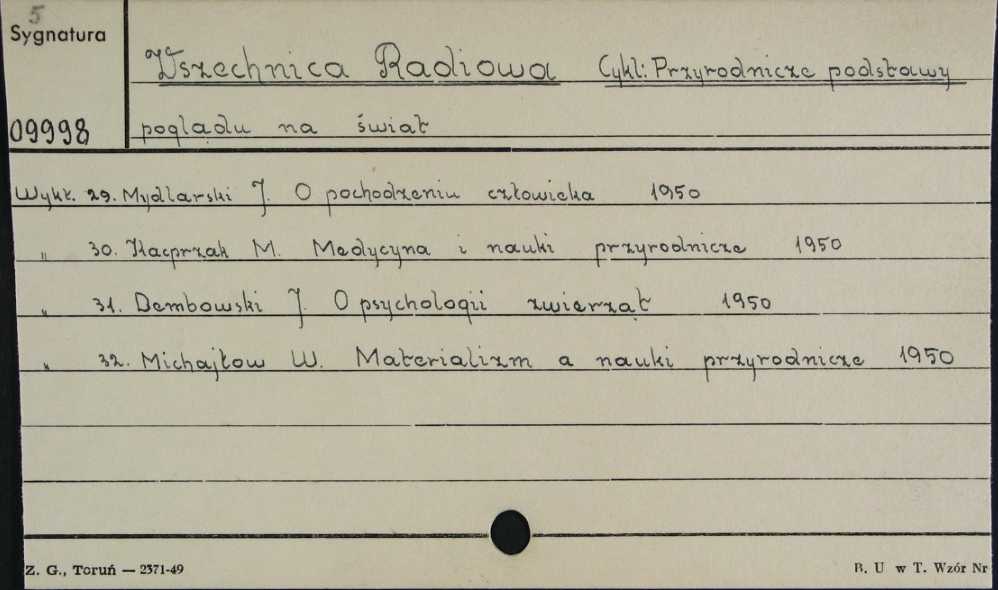 5
Sygnatura
Wszechnica Radiowa Cykl: Przyrodnicze podstawy
09998 poglądu na świat
Wykł. 29. Mydlarski J. O pochodzeniu człowieka 1950
" 30. Kacprzak M. Medycyna i nauki przyrodnicze 1950
" 31. Dembowski J. O psychologii zwierząt 1950
" 32. Michajłow W. Materializm a nauki przyrodnicze 1950
Z. G., Toruń — 2371-49 B. U w T. Wzór Nr